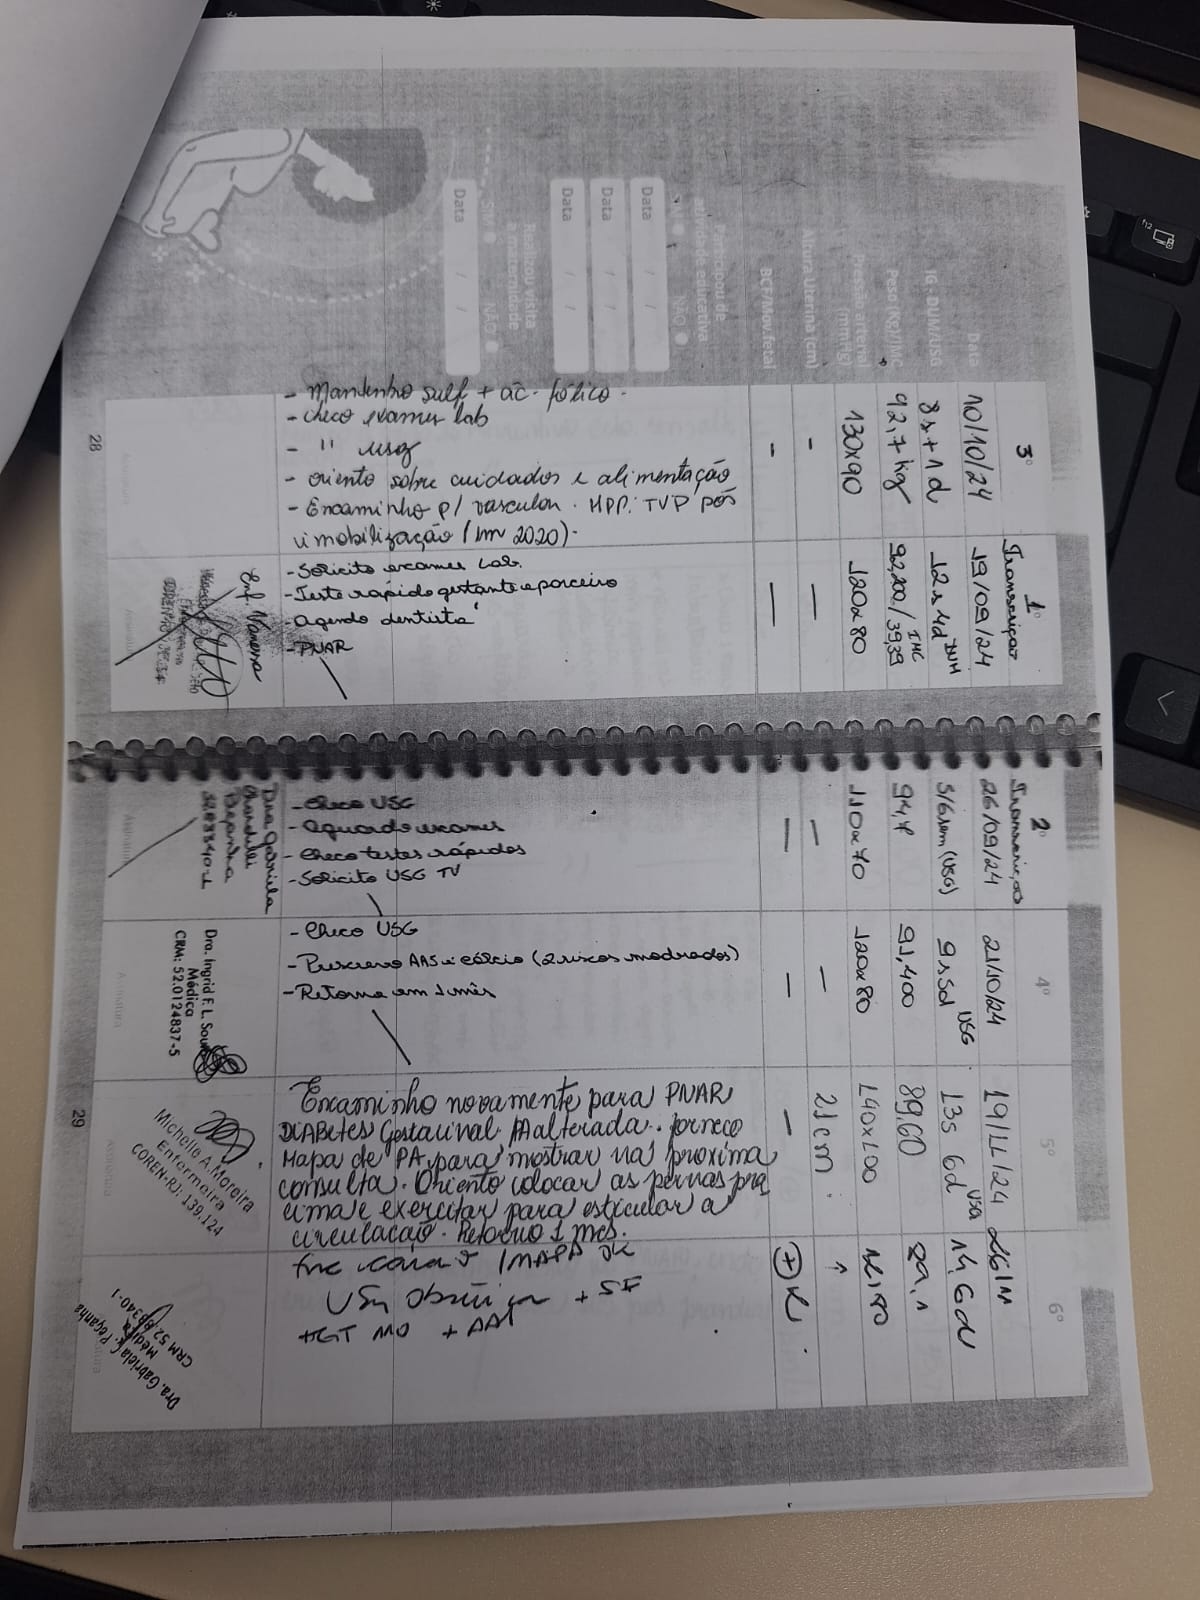 Data
IG - DUM/USG
Peso (kg)/IMC
Pressão arterial (mmHg)
Altura Uterina (cm)
BCF/Mov.fetal
Participou de
atividade educativa
SIM NÃO
Data / /
Data / /
Data / /
Realizou visita
a maternidade
SIM NÃO
Data / /
3º
10/10/24
8s+1d
92,7kg
130x90
-
-
- Mantenho sulf + ác. fólico.
- checo exames lab
- " usg
- oriento sobre cuidados e alimentação
- Encaminho p/ vascular. HPP: TVP pós
imobilização (em 2020).
28
1º
Transcrição
19/09/24
12s4d DUM
92,200/39,39 IMC
120x80
—
—
- Solicito exames Lab.
- Teste rápido gestante e parceiro
- Agendo dentista
- PNAR
Enf. Vanessa
2º
Transcrição
26/09/24
5/6sem (USG)
94,4
110x70
—
—
- Checo USG
- Aguardo exames
- Checo testes rápidos
- Solicito USG TV
Dra Gabriela
Peçanha
Assinatura
4º
21/10/24
9s5d USG
91,400
120x80
—
—
- Checo USG
- Prescrevo AAS e cálcio (2 riscos moderados)
- Retorna em 1 mês
Dra. Ingrid F. L.
Médica
CRM: 52.0124837-5
Assinatura
5º
19/11/24
13s 6d USG
89,60
140x100
21cm.
-
Encaminho novamente para PNAR
DIABetes Gestacinal PA alterada. forneço
Mapa de PA para mostrar na proxima
consulta. Oriento colocar as pernas pra
cima e exercitar para esticular a
circulacão. Retorno 1 mes.
Michelle A. Moreira
Enfermeira
COREN-RJ: 139.124
29
6º
26/11
14,6d
⊕
MAPA OK
+ SF
+ AAS
Dra. Gabriela C. Peçanha
Médica